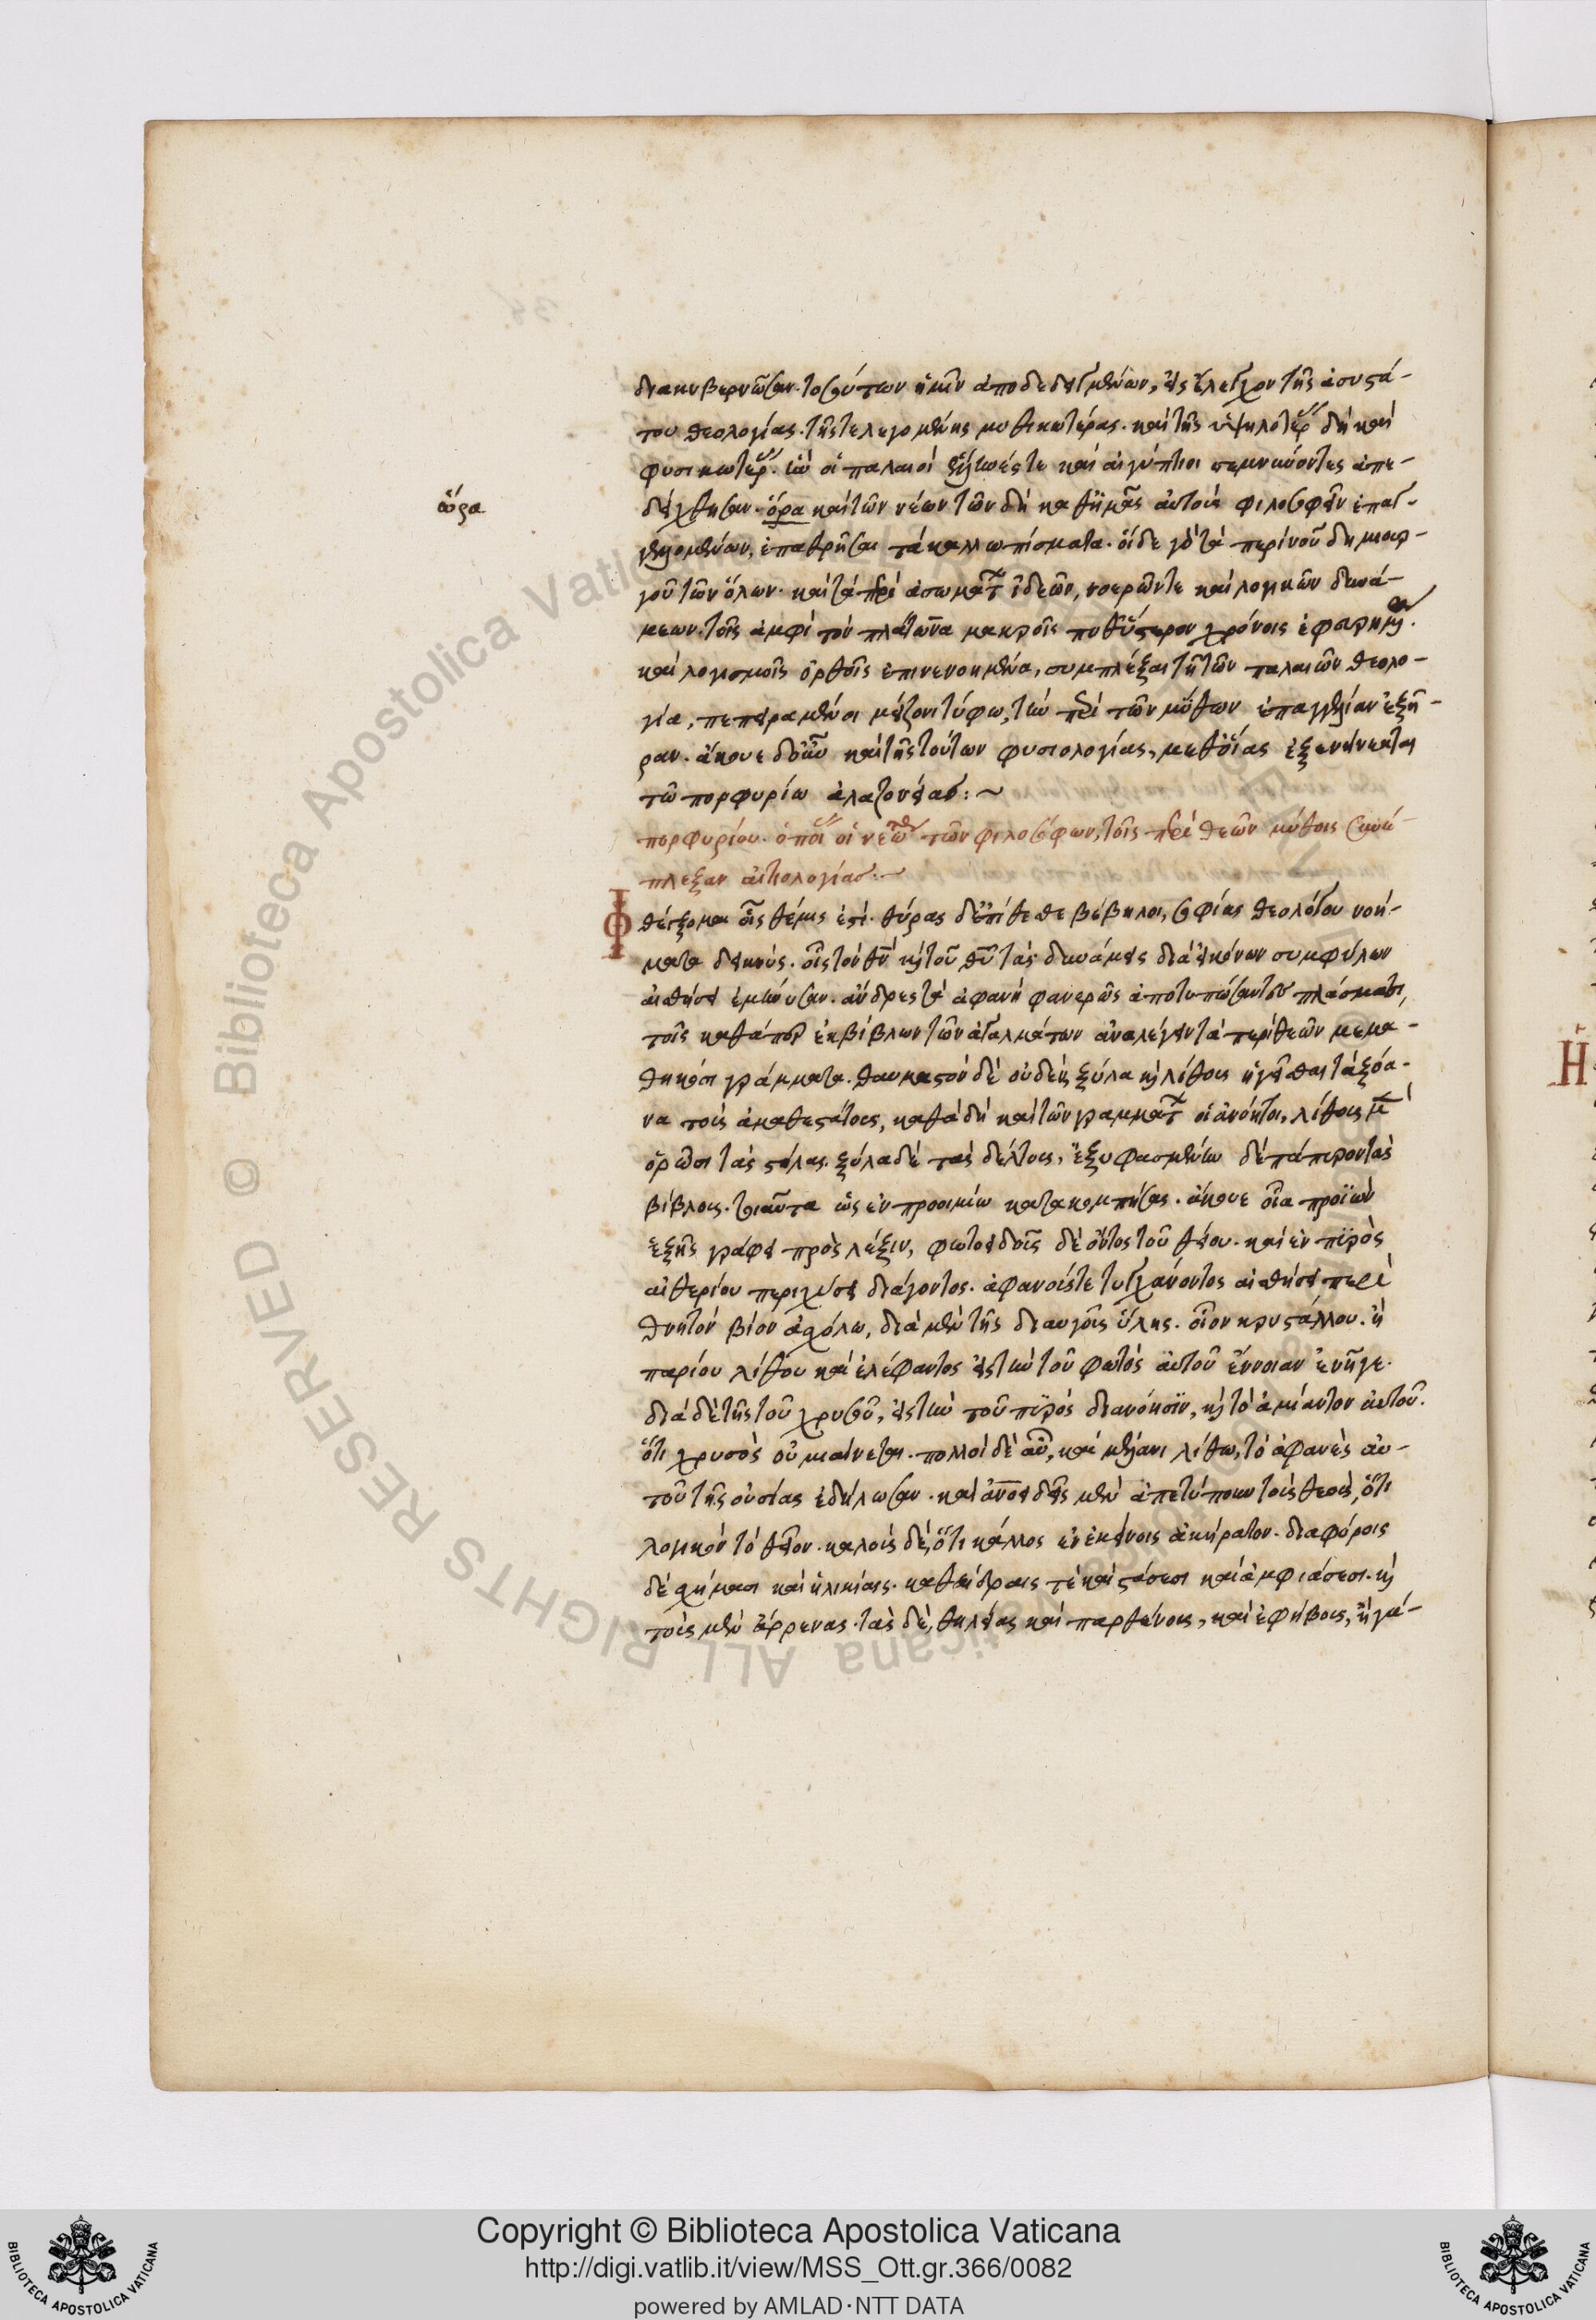 διακυβερνῶσαν. τοσούτων ἡμῖν ἀποδεδειγμένων, εἰς ἔλεγχον τῆς ἀσυστά-
του θεολογίας. τῆς τε λεγομένης μυθικωτέρας. καὶ τῆς ὑψηλοτέρ δὴ καὶ
φυσικωτέρ. ἣν οἱ παλαιοὶ ἕλληνές τε καὶ αἰγύπτιοι σεμνύνοντες ἀπε-
δείχθησαν. ὅρα καὶ τῶν νέων τῶν δὴ καθ' ἡμᾶς αὐτοὺς φιλοσοφεῖν ἐπαγ-
γελλομένων, ἐπαθρῆσαι τὰ καλλωπίσματα. οἵδε γὸ τὰ περὶ νοῦ δημιουρ-
γοῦ τῶν ὅλων. καὶ τὰ περὶ ἀσωμάτ ἰδεῶν, νοερῶν τε καὶ λογικῶν δυνά-
μεων. τοῖς ἀμφὶ τὸν πλάτωνα μακροῖς ὕστερον χρόνοις ἐφευρημ.
καὶ λογισμοῖς ὀρθοῖς ἐπινενοημένα, συμπλέξαι τῇ τῶν παλαιῶν θεολο-
γία, πεπειραμένοι μείζονι τύφω, τὴν περὶ τῶν μύθων ἐπαγγελίαν ἐξῆ-
ραν. ἄκουε δ' οὖν καὶ τῆς τούτων φυσιολογίας, μεθ' οἵας ἐξενήνεκται
τῶ πορφυρίω ἀλαζονείας: ~
πορφυρίου. ὁποῖ οἱ νεώ τῶν φιλοσόφων, τοῖς περὶ θεῶν μύθοις συνέ-
πλεξαν αἰτιολογίας: ~
Φθέγξομαι οἷς θέμις ἐστί. θύρας δ' ἐπίθεσθε βέβηλοι, σοφίας θεολόγου νοή-
ματα δεικνύς. οἷς τὸν θν κ τοῦ θυ τὰς δυνάμεις διὰ εἰκόνων συμφύλων
αἰσθήσει ἐμήνυσαν. ἄνδρες τὰ ἀφανῆ φανεροῖς ἀποτυπώσαντες πλάσμασι,
τοῖς καθάπερ ἐκ βίβλων τῶν ἀγαλμάτων ἀναλέγειν τὰ περὶ θεῶν μεμα-
θηκόσι γράμματα. θαυμαστὸν δὲ οὐδὲν ξύλα κ λίθους ἡγεῖσθαι τὰ ξόα-
να τοὺς ἀμαθεστάτους, καθὰ δὴ καὶ τῶν γραμμάτ οἱ ἀνόητοι, λίθους μ
ὁρῶσι τὰς στήλας. ξύλα δὲ τὰς δέλτους, ἐξυφασμένην δὲ πάπυρον τὰς
βίβλους. τοιαῦτα ὡς ἐν προοιμίω κατακομπήσας. ἄκουε οἷα προϊὼν
ἑξῆς γράφει πρὸς λέξιν, φωτοειδοῦς δὲ ὄντος τοῦ θείου. καὶ ἐν πυρὸς
αἰθερίου περιχύσει διάγοντος. ἀφανοῦς τε τυγχάνοντος αἰσθήσει περὶ
θνητὸν βίον ἀσχόλω, διὰ μὲν τῆς διαυγοῦς ὕλης. οἷον κρυστάλλου. ἢ
παρίου λίθου καὶ ἐλέφαντος εἰς τὴν τοῦ φωτὸς αὐτοῦ ἔννοιαν ἐνῆγε.
διὰ δὲ τῆς τοῦ χρυσοῦ, εἰς τὴν τοῦ πυρὸς διανόησιν, κ τὸ ἀμίαντον αὐτοῦ.
ὅτι χρυσὸς οὐ μιαίνεται. πολλοὶ δὲ αὖ, καὶ μέλανι λίθω, τὸ ἀφανὲς αὐ-
τοῦ τῆς οὐσίας ἐδήλωσαν. καὶ ἀνοειδεῖς μὲν ἀπετύπουν τοὺς θεοὺς, ὅτι
λογικὸν τὸ θεῖον. καλοὺς δὲ, ὅτι κάλλος ἐν ἐκείνοις ἀκήρατον. διαφόροις
δὲ σχήμασι καὶ ἡλικίαις. καθέδραις τὲ καὶ στάσεσι καὶ ἀμφιάσεσι. κ
τοὺς μὲν ἄρρενας. τὰς δὲ, θηλείας καὶ παρθένους, καὶ ἐφήβους, ἢ γά-
ὅρα
Copyright © Biblioteca Apostolica Vaticana
http://digi.vatlib.it/view/MSS_Ott.gr.366/0082
powered by AMLAD·NTT DATA
BIBLIOTECA APOSTOLICA VATICANA
BIBLIOTECA APOSTOLICA VATICANA
© Biblioteca Apostolica Vaticana ALL RIGHTS RESERVED